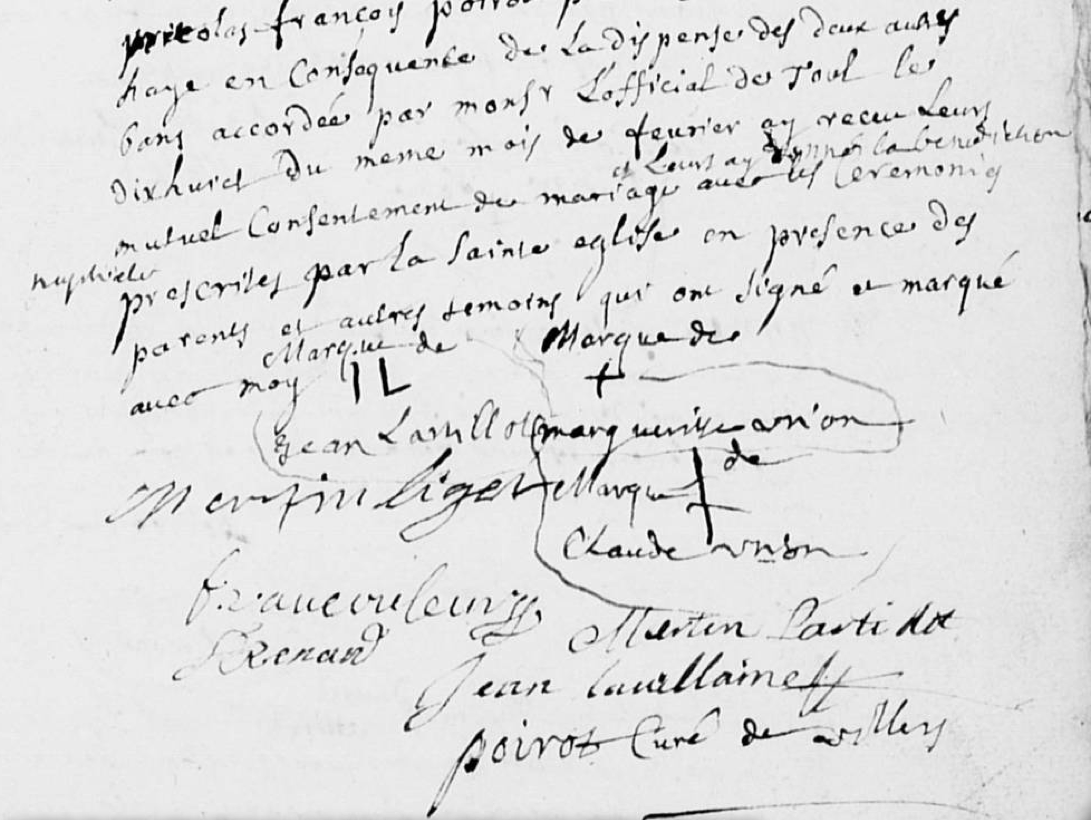 nicolas françois poirot
haye en Consequence de La dispense des deux autres
bans accordée par monsr L'official de Toul le
dixhuict du meme mois de fevrier ay receu Leurs
et Leurs ay donné la benediction
mutuel Consentement de mariage avec les Ceremonies
nuptiale
prescrites par la Sainte eglise en presence des
parents et autres temoins qui ont Signé et marqué
avec moy Marque de Marque de
IL +
Jean marguerite vrion
Martin liget Marque de
Claude vrion
f vaucouleurs
Renard Martin
Jean
poirot Curé de villers